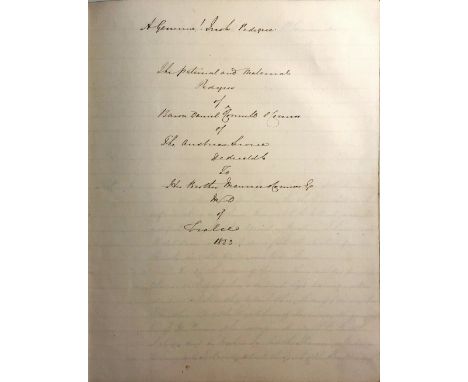 A Genuine! Irish Pedigree
The paternal and Maternal
Pedigree
of
Baron Daniel O'Connor
of
The Austrian Service
Dedicated
To
His Brother Maurice O'Connor Esq
M D
of
Tralee
1823